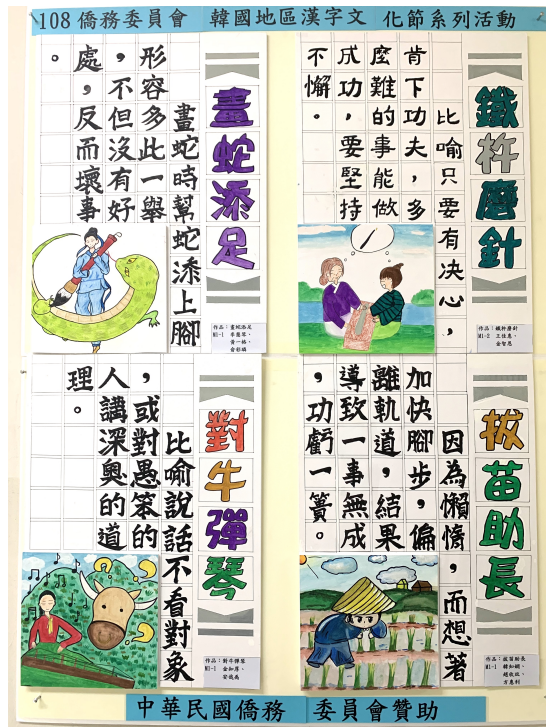 108 僑務委員會 韓國地區漢字文 化節系列活動
鐵杵磨針
比喻只要有決心，
肯下功夫，多
麼難的事能做
成功，要堅持
不懈。
作品：鐵杵磨針
M1-2 王佳惠、
金智恩
畫蛇添足
畫蛇時幫蛇添上腳
形容多此一舉
，不但沒有好
處，反而壞事
。
作品：畫蛇添足
M1-1
拔苗助長
因為懶惰，而想著
加快腳步，偏
離軌道，結果
導致一事無成
，功虧一簣。
作品：拔苗助長
M1-1
方惠利
對牛彈琴
比喻說話不看對象
，或對愚笨的
人講深奧的道
理。
作品：對牛彈琴
M1-1 金知厚、
中華民國僑務 委員會贊助